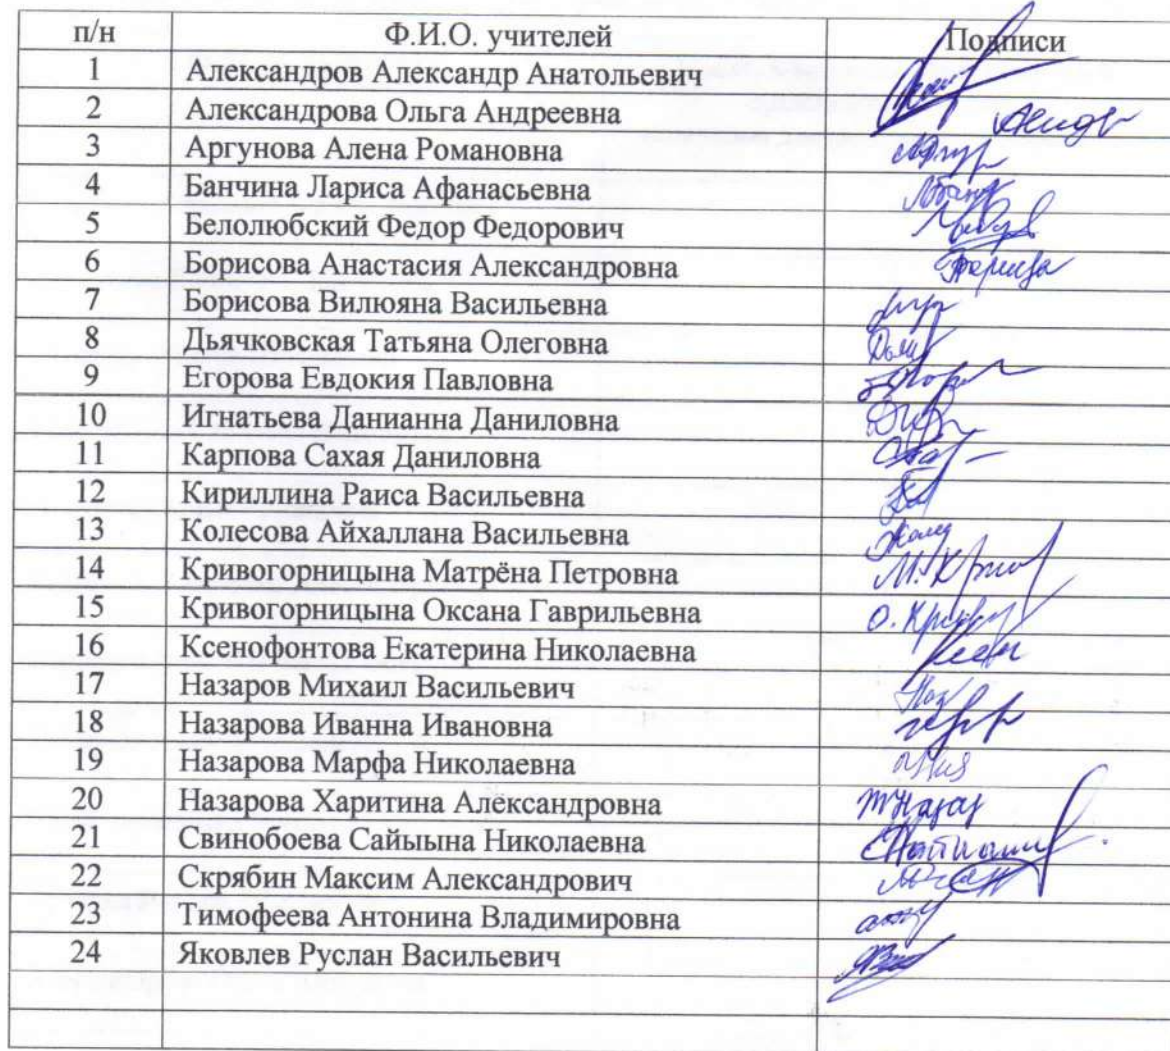 п/н Ф.И.О. учителей Подписи
1 Александров Александр Анатольевич
2 Александрова Ольга Андреевна
3 Аргунова Алена Романовна
4 Банчина Лариса Афанасьевна
5 Белолюбский Федор Федорович
6 Борисова Анастасия Александровна
7 Борисова Вилюяна Васильевна
8 Дьячковская Татьяна Олеговна
9 Егорова Евдокия Павловна
10 Игнатьева Данианна Даниловна
11 Карпова Сахая Даниловна
12 Кириллина Раиса Васильевна
13 Колесова Айхаллана Васильевна
14 Кривогорницына Матрёна Петровна
15 Кривогорницына Оксана Гаврильевна
16 Ксенофонтова Екатерина Николаевна
17 Назаров Михаил Васильевич
18 Назарова Иванна Ивановна
19 Назарова Марфа Николаевна
20 Назарова Харитина Александровна
21 Свинобоева Сайыына Николаевна
22 Скрябин Максим Александрович
23 Тимофеева Антонина Владимировна
24 Яковлев Руслан Васильевич